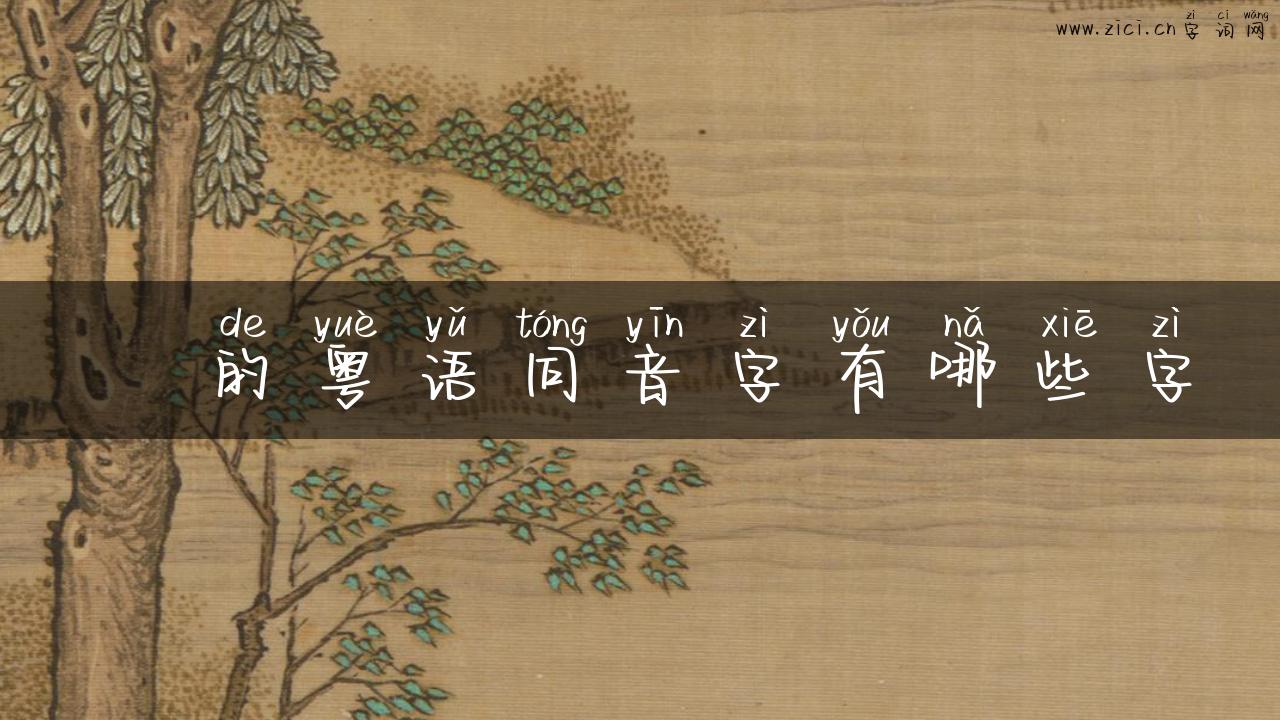 zì cí wǎng
www.zici.cn字词网
de yuè yǔ tóng yīn zì yǒu nǎ xiē zì
的粤语同音字有哪些字